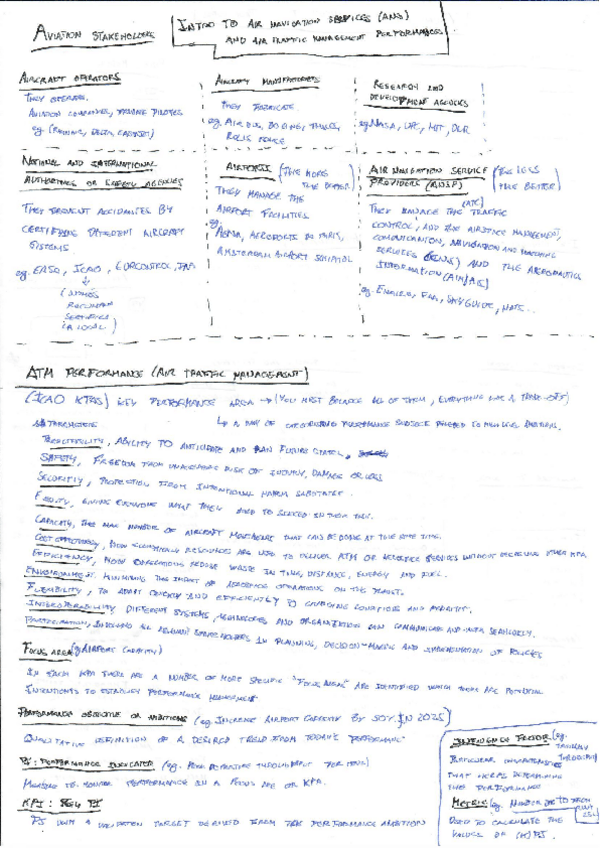 AVIATION STAKEHOLDERS
INTRO TO AIR NAVIGATION SERVICES (ANS)
AND AIR TRAFFIC MANAGEMENT PERFORMANCES
AIRCRAFT OPERATORS
THEY OPERATE.
AVIATION COMPANIES, PRIVATE PILOTES
eg. (RYANAIR, DELTA, EASYJET)
AIRCRAFT MANUFACTURERS
THEY FABRICATE.
eg. AIRBUS, BOEING, THALES,
ROLLS ROYCE
RESEARCH AND
DEVELOPMENT AGENCIES
eg. NASA, UPC, MIT, DLR
NATIONAL AND INTERNATIONAL
AUTHORITIES OR SAFETY AGENCIES
THEY PREVENT ACCIDENTES BY
CERTIFYING DIFFERENT AIRCRAFT
SISTEMS
eg. EASA, ICAO, EUROCONTROL, FAA
SERTIFICA
LA LOCAL)
AIRPORTS (THE MORE
THE BETTER)
THEY MANAGE THE
AIRPORT FACILITIES
eg. AENA, AEROPORTS DE PARIS,
AMSTERDAM AIRPORT SCHIPHOL
AIR NAVIGATION SERVICE (THE LESS
PROVIDERS (ANSP) THE BETTER)
THEY MANAGE THE TRAFFIC (ATC)
CONTROL, AND THE AIRSPACE MANAGEMENT,
COMUNICATION, NAVIGATION AND
SERVICES (CNS) AND THE AERONAUTICS
INFORMATION (AIM/AIS)
eg. ENAIRE, FAA, SKYGUIDE, NATS...
ATM PERFORMANCE (AIR TRAFFIC MANAGEMENT)
(ICAO KPAS) KEY PERFORMANCE AREA → (YOU MUST BALANCE ALL OF THEM, EVERYTHING LIKE A TRADE-OFF)
↳ A WAY OF CATEGORIZING PERFORMANCE SUBJECTS RELATED TO HIGH LEVEL
PREDICTABILITY, ABILITY TO ANTICIPATE AND PLAN FUTURE STATES,
SAFETY, FREEDOM FROM UNACCEPTABLE RISK OF INJURY, DAMAGE OR LOSS
SECURITY, PROTECTION FROM INTENTIONAL HARM SABOTAGES.
EQUITY, GIVING EVERYONE WHAT THEY NEED TO SUCCEED IN THEIR
CAPACITY, THE MAX NUMBER OF AIRCRAFT MOVEMENTS THAT CAN BE DONE AT THE SAME TIME.
COST EFFECTIVENESS, HOW ECONOMICALLY RESOURCES ARE USED TO DELIVER ATM OR SERVICES WITHOUT DECREASING OTHER KPA.
EFFICIENCY, HOW OPERATIONS REDUCE WASTE IN TIME, DISTANCE, ENERGY AND FUEL.
ENVIRONMENT, MINIMIZING THE IMPACT OF AEROSPACE OPERATIONS ON THE PLANET.
FLEXIBILITY, TO ADAPT QUICKLY AND EFFICIENTLY TO CHANGING CONDITIONS AND
INTEROPERABILITY DIFFERENT SYSTEMS, TECHNOLOGIES AND ORGANIZATION CAN COMMUNICATE AND SEAMLESSLY.
PARTICIPATION, INVOLVING ALL RELEVANT STAKEHOLDERS IN PLANNING, DECISION-MAKING AND IMPLEMENTATION OF POLICIES
FOCUS AREA (eg AIRPORT CAPACITY)
IN EACH KPA THERE ARE A NUMBER OF MORE SPECIFIC "FOCUS AREAS" ARE IDENTIFIED WHICH THERE ARE POTENTIAL
INTENTIONS TO ESTABLISH PERFORMANCE MANAGEMENT
PERFORMANCE OBJECTIVE OR AMBITIONS (eg. INCREASE AIRPORT CAPACITY BY 50% IN 2025)
QUALITATIVE DEFINITION OF A DESIRED TREND FROM TODAY'S PERFORMANCE
PI: PERFORMANCE INDICATOR (eg. PEAK DEPARTURE THROUGHPUT PER HOUR)
MEASURE TO MONITOR PERFORMANCE IN A FOCUS ARE OR KPA.
KPI: KEY PI
PI WITH A TARGET DERIVED FROM THE PERFORMANCE AMBITION
INFLUENCE FACTOR (eg.
PARTICULAR CHARACTERISTICS
THAT HELPS DETERMINING
THE PERFORMANCE
METRIC (eg. NUMBER OF FROM
USED TO CALCULATE THE
VALUES OF (K)PI.